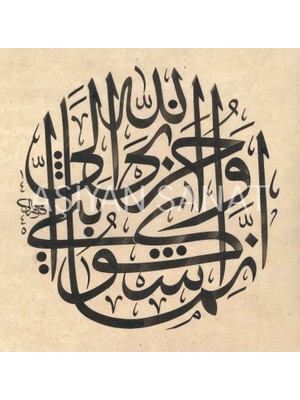 إنما أشكو بثي وحزني إلى الله
ASİYAN SANAT